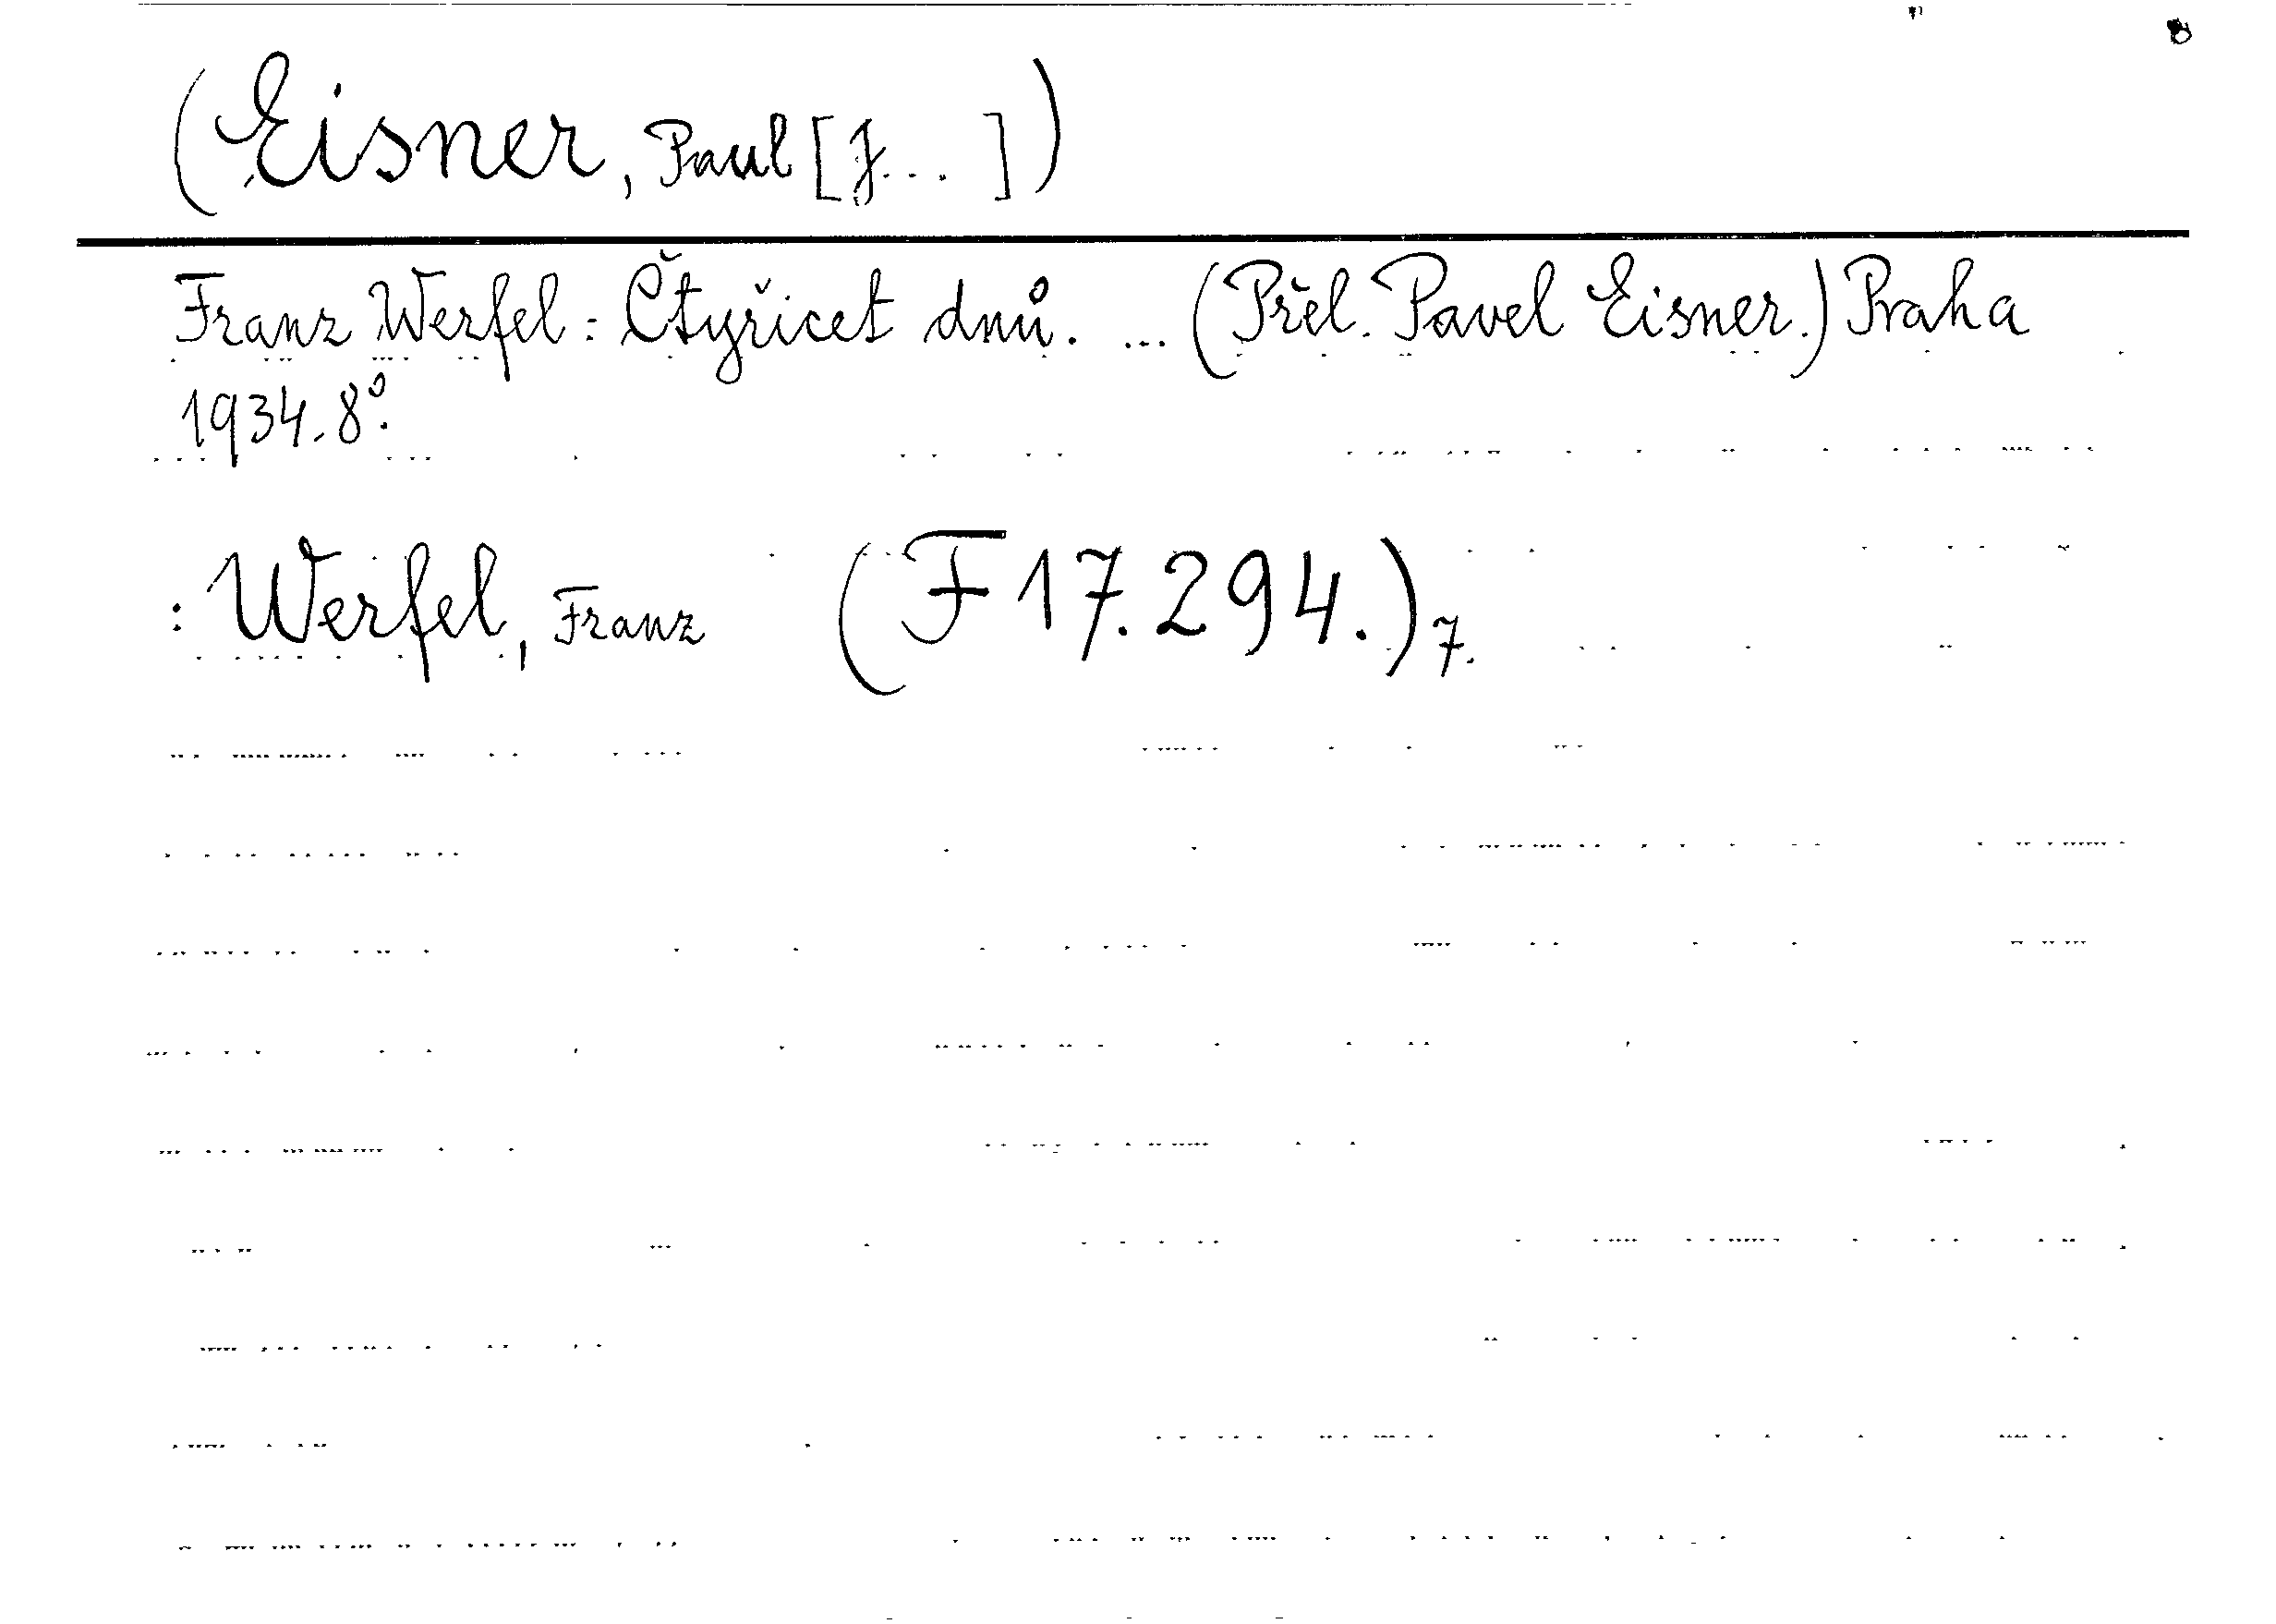 (Eisner, Paul [J... ])
Franz Werfel: Čtyřicet dnů. ... (Přel. Pavel Eisner.) Praha
1934. 8º.
: Werfel, Franz (F 17.294.) 7.